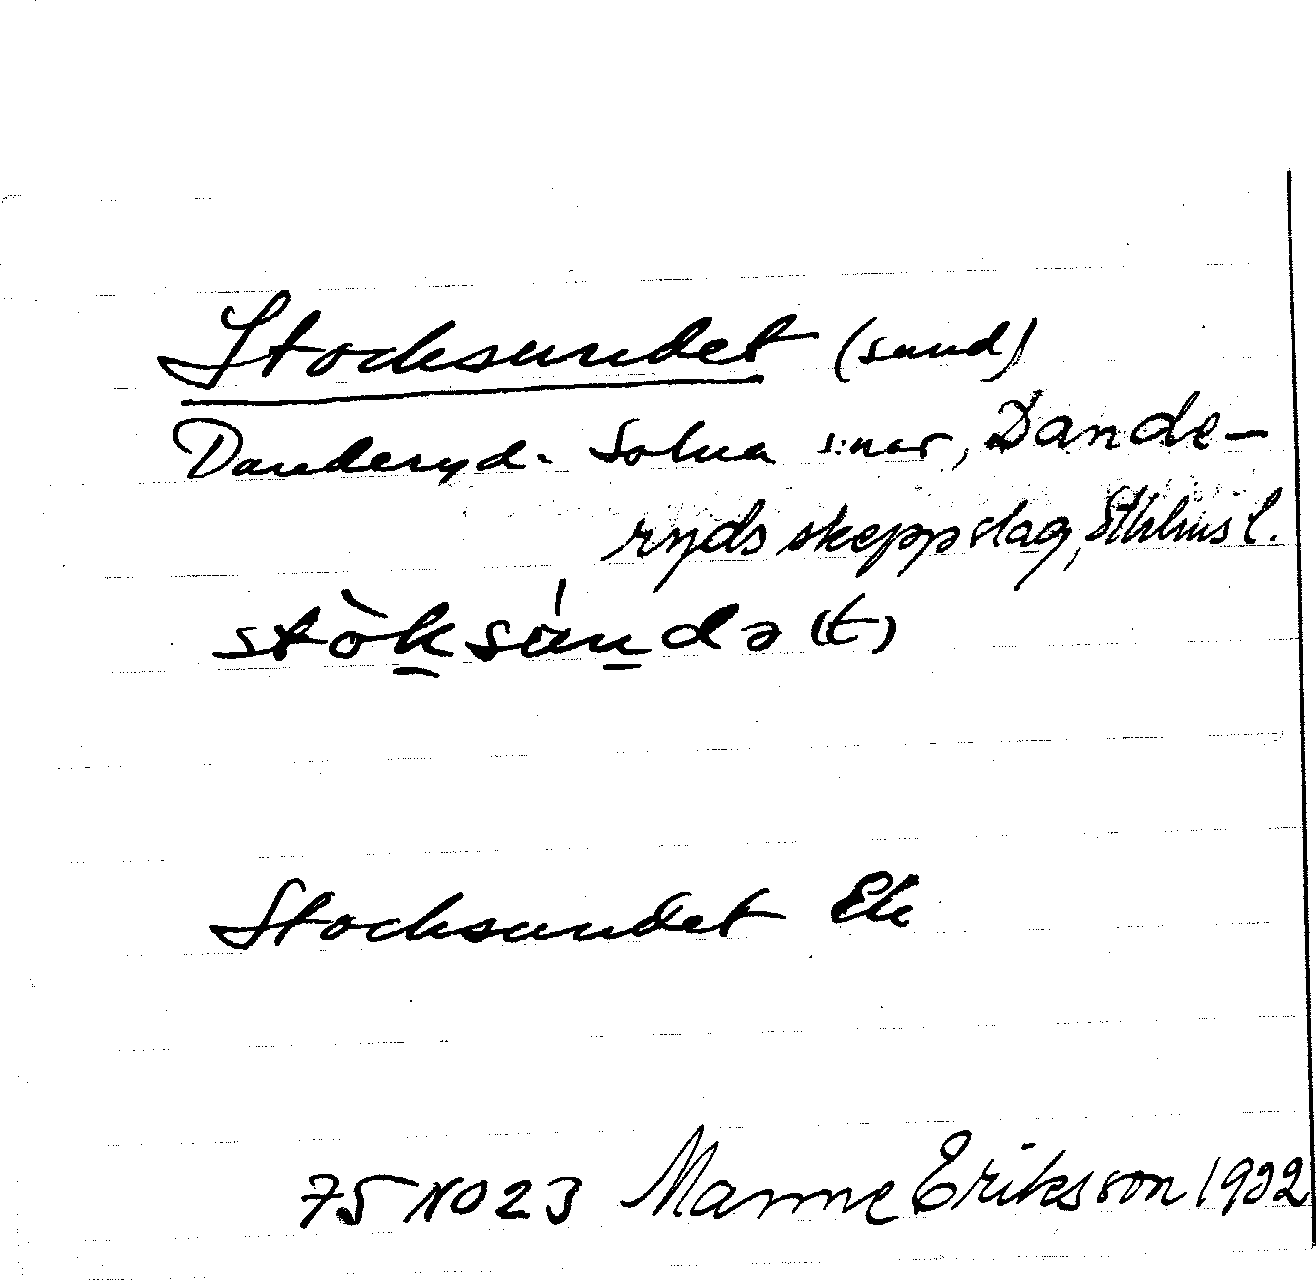 Stocksundet (sund)
Danderyd - Solna s:nar, Dande-
ryds skeppslag, Sthlms l.
stòksúndə (t)
Stocksundet Ek
75 NO 23 Manne Eriksson 1932